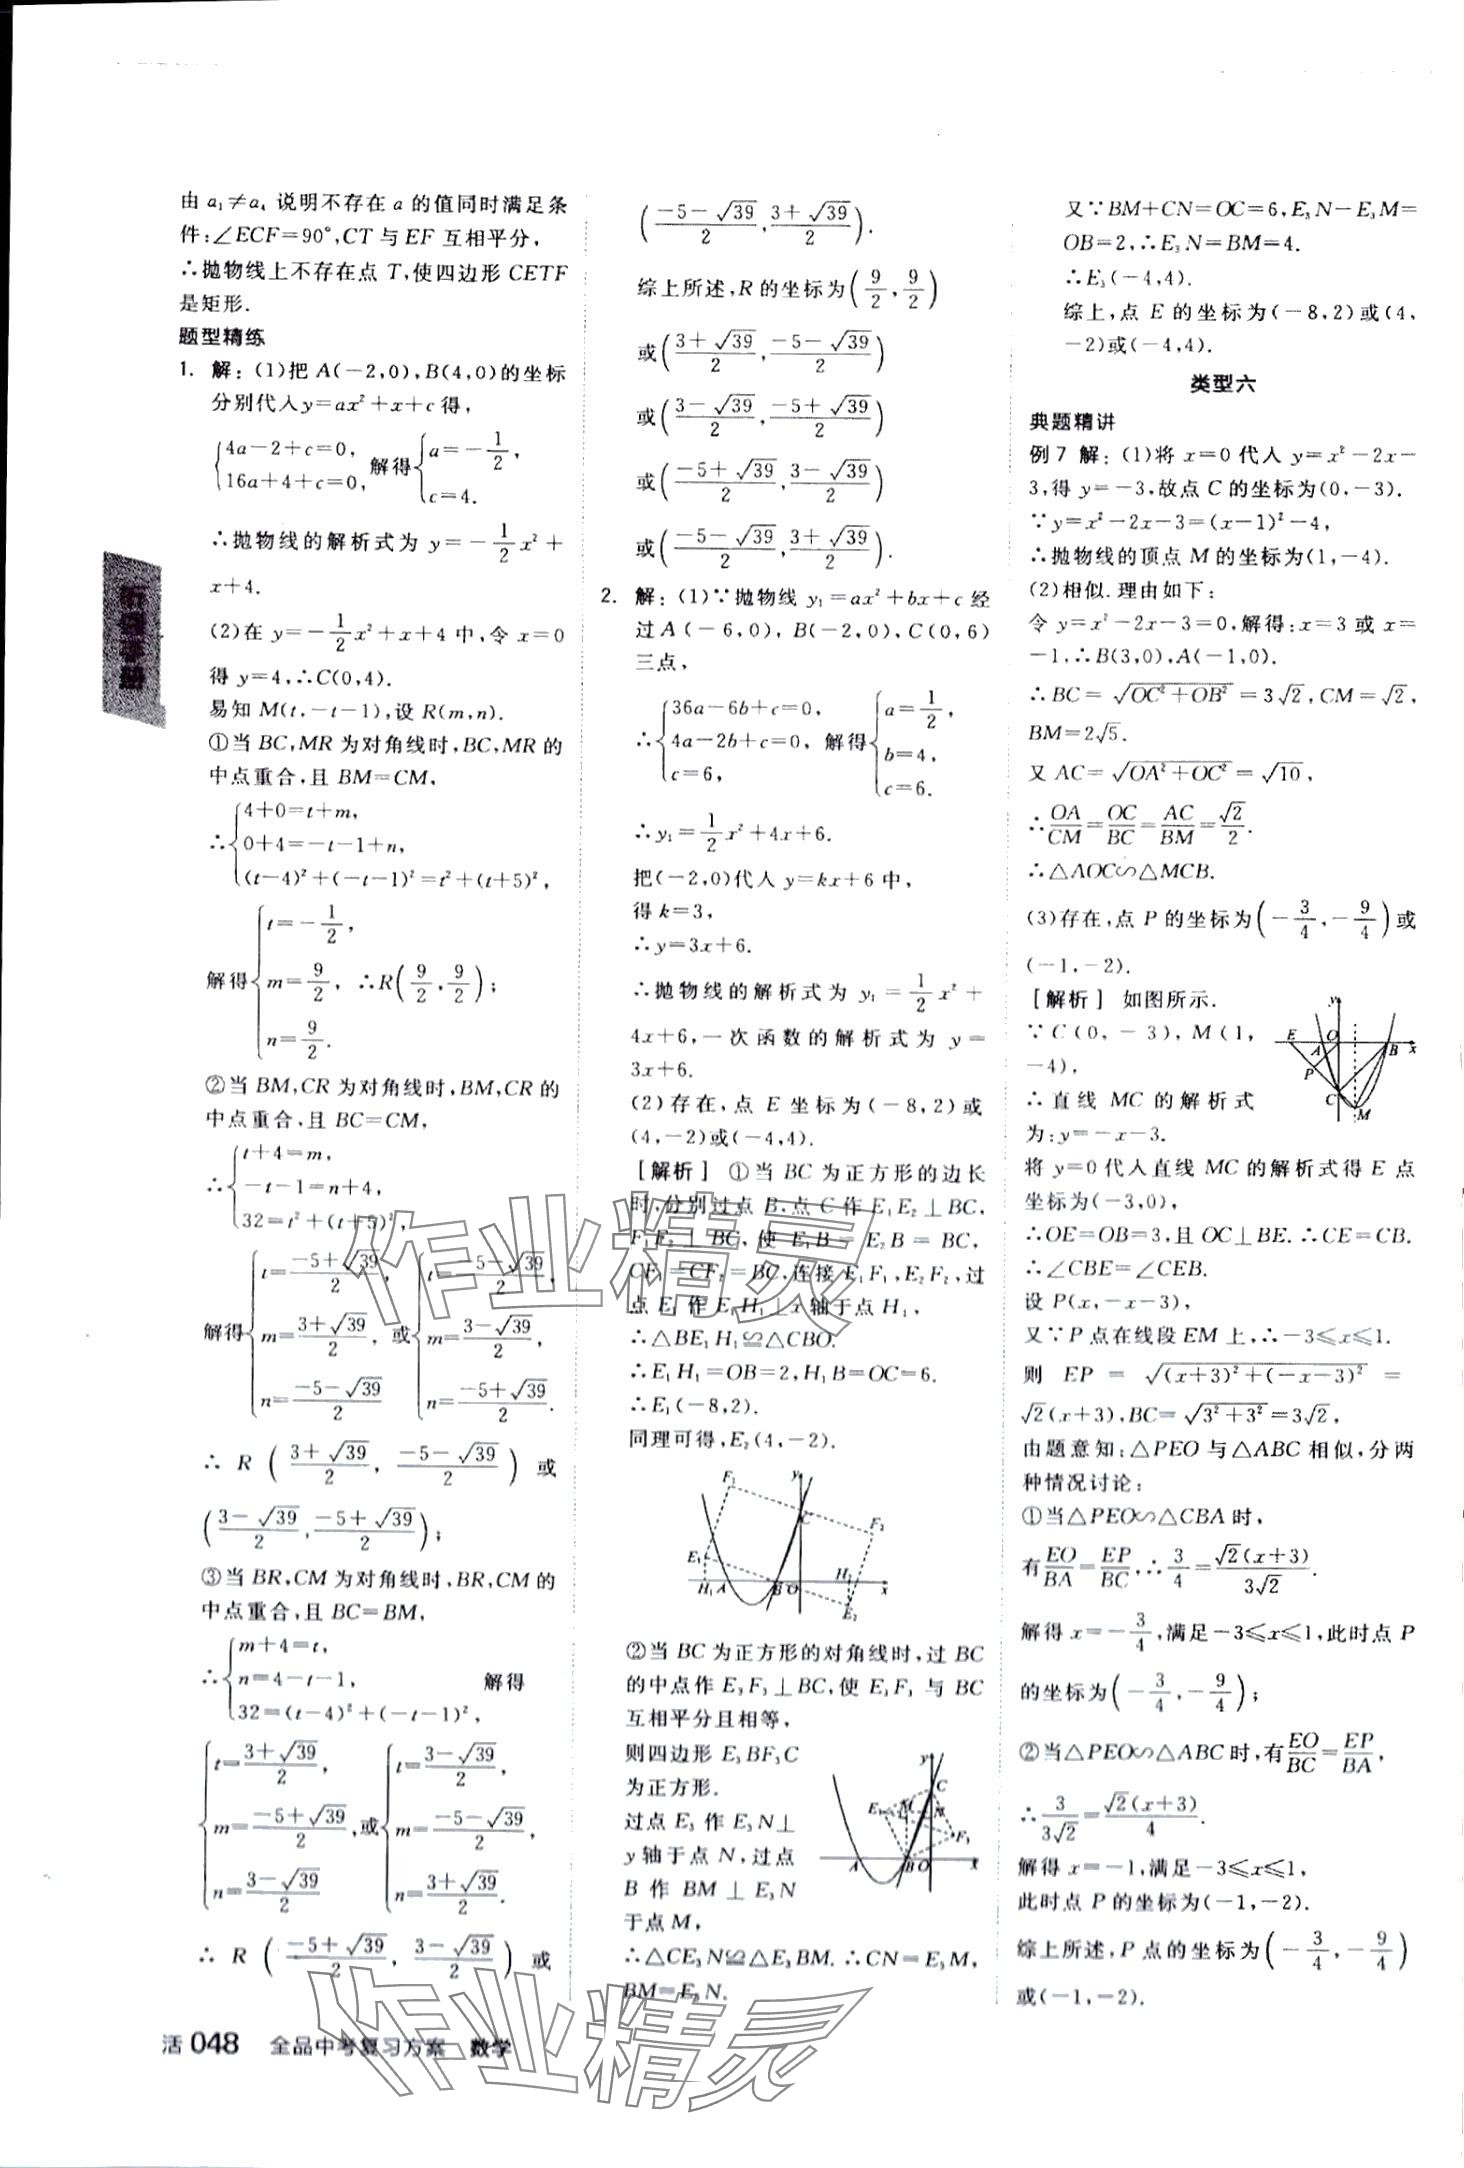 由 a₁≠a₄ 说明不存在 a 的值同时满足条
件:∠ECF=90°,CT 与 EF 互相平分,
∴抛物线上不存在点 T,使四边形 CETF
是矩形.
题型精练
1. 解:(1)把 A(-2,0),B(4,0)的坐标
分别代入 y=ax²+x+c 得,
{4a-2+c=0, 16a+4+c=0, 解得{a=-1/2, c=4.
∴抛物线的解析式为 y=-1/2x²+
x+4.
(2)在 y=-1/2x²+x+4 中,令 x=0
得 y=4,∴C(0,4).
易知 M(t,-t-1),设 R(m,n).
①当 BC,MR 为对角线时,BC,MR 的
中点重合,且 BM=CM,
∴{4+0=t+m,
0+4=-t-1+n,
(t-4)²+(-t-1)²=t²+(t+5)²,
解得{t=-1/2, m=9/2, n=9/2. ∴R(9/2,9/2);
②当 BM,CR 为对角线时,BM,CR 的
中点重合,且 BC=CM,
∴{t+4=m,
-t-1=n+4,
32=t²+(t+5)²,
解得{t=(-5+√39)/2, m=(3+√39)/2, n=(-5-√39)/2 或{t=(-5-√39)/2, m=(3-√39)/2, n=(-5+√39)/2.
∴ R((3+√39)/2, (-5-√39)/2) 或
((3-√39)/2, (-5+√39)/2);
③当 BR,CM 为对角线时,BR,CM 的
中点重合,且 BC=BM,
∴{m+4=t,
n=4-t-1, 解得
32=(t-4)²+(-t-1)²,
{t=(3+√39)/2, m=(-5+√39)/2, n=(3-√39)/2 或{t=(3-√39)/2, m=(-5-√39)/2, n=(3+√39)/2.
∴ R((-5+√39)/2, (3-√39)/2) 或
((-5-√39)/2, (3+√39)/2).
综上所述,R 的坐标为(9/2,9/2)
或((3+√39)/2, (-5-√39)/2)
或((3-√39)/2, (-5+√39)/2)
或((-5+√39)/2, (3-√39)/2)
或((-5-√39)/2, (3+√39)/2).
2. 解:(1)∵抛物线 y₁=ax²+bx+c 经
过 A(-6,0),B(-2,0),C(0,6)
三点,
∴{36a-6b+c=0, 4a-2b+c=0, c=6, 解得{a=1/2, b=4, c=6.
∴y₁=1/2x²+4x+6.
把(-2,0)代入 y=kx+6 中,
得 k=3,
∴y=3x+6.
∴抛物线的解析式为 y₁=1/2x²+
4x+6,一次函数的解析式为 y=
3x+6.
(2)存在,点 E 坐标为(-8,2)或
(4,-2)或(-4,4).
[解析] ①当 BC 为正方形的边长
时,分别过点 B,点 C 作 E₁E₂⊥BC,
F₁F₂⊥BC,使 E₁B=E₂B=BC,
CF₁=CF₂=BC,连接 E₁F₁,E₂F₂,过
点 E₁ 作 E₁H₁⊥x 轴于点 H₁,
∴△BE₁H₁≌△CBO.
∴E₁H₁=OB=2,H₁B=OC=6.
∴E₁(-8,2).
同理可得,E₂(4,-2).
F₁ y C F₂ E₁ H₁ A B O H₂ x E₂
②当 BC 为正方形的对角线时,过 BC
的中点作 E₃F₃⊥BC,使 E₃F₃ 与 BC
互相平分且相等,
则四边形 E₃BF₃C
为正方形.
过点 E₃ 作 E₃N⊥
y 轴于点 N,过点
B 作 BM⊥E₃N
于点 M,
y C E₃ M N F₃ A B O x
∴△CE₃N≌△E₃BM.∴CN=E₃M,
BM=E₃N.
又∵BM+CN=OC=6,E₃N-E₃M=
OB=2,∴E₃N=BM=4.
∴E₃(-4,4).
综上,点 E 的坐标为(-8,2)或(4,
-2)或(-4,4).
类型六
典题精讲
例 7 解:(1)将 x=0 代入 y=x²-2x-
3,得 y=-3,故点 C 的坐标为(0,-3).
∵y=x²-2x-3=(x-1)²-4,
∴抛物线的顶点 M 的坐标为(1,-4).
(2)相似.理由如下:
令 y=x²-2x-3=0,解得:x=3 或 x=
-1,∴B(3,0),A(-1,0).
∴BC=√(OC²+OB²)=3√2,CM=√2,
BM=2√5.
又 AC=√(OA²+OC²)=√10,
∴OA/CM=OC/BC=AC/BM=√2/2.
∴△AOC∽△MCB.
(3)存在,点 P 的坐标为(-3/4,-9/4)或
(-1,-2).
[解析] 如图所示.
∵C(0,-3),M(1,
-4),
∴直线 MC 的解析式
为:y=-x-3.
y E A O B x P C M
将 y=0 代入直线 MC 的解析式得 E 点
坐标为(-3,0),
∴OE=OB=3,且 OC⊥BE.∴CE=CB.
∴∠CBE=∠CEB.
设 P(x,-x-3),
又∵P 点在线段 EM 上,∴-3≤x≤1.
则 EP=√((x+3)²+(-x-3)²)=
√2(x+3),BC=√(3²+3²)=3√2,
由题意知:△PEO 与△ABC 相似,分两
种情况讨论:
①当△PEO∽△CBA 时,
有EO/BA=EP/BC,∴3/4=√2(x+3)/3√2.
解得 x=-3/4,满足-3≤x≤1,此时点 P
的坐标为(-3/4,-9/4);
②当△PEO∽△ABC 时,有EO/BC=EP/BA,
∴3/3√2=√2(x+3)/4.
解得 x=-1,满足-3≤x≤1,
此时点 P 的坐标为(-1,-2).
综上所述,P 点的坐标为(-3/4,-9/4)
或(-1,-2).
活 048 全品中考复习方案 数学
作业精灵
作业精灵